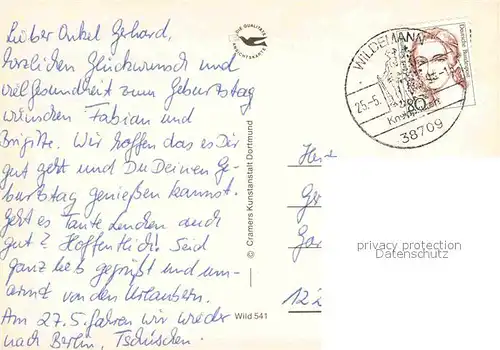 Lieber Onkel Gerhard,
herzlichen Glückwunsch und
viel Gesundheit zum Geburtstag
wünschen Fabian und
Brigitte. Wir hoffen das es Dir
gut geht und Du Deinen Ge-
burtstag genießen kannst.
Geht es Tante Lenchen auch
gut? Hoffentlich! Seid
ganz lieb gegrüßt und um-
armt von den Urlaubern.
Am 27.5. fahren wir wieder
nach Berlin, Tschüschen.
© Cramers Kunstanstalt Dortmund
Wild 541
DIE QUALITÄTS
ANSICHTSKARTE
WILDEMANN
25.-5.
38709
Deutsche Bundespost
80
Her
Gr
Gar
122
privacy protection
Datenschutz